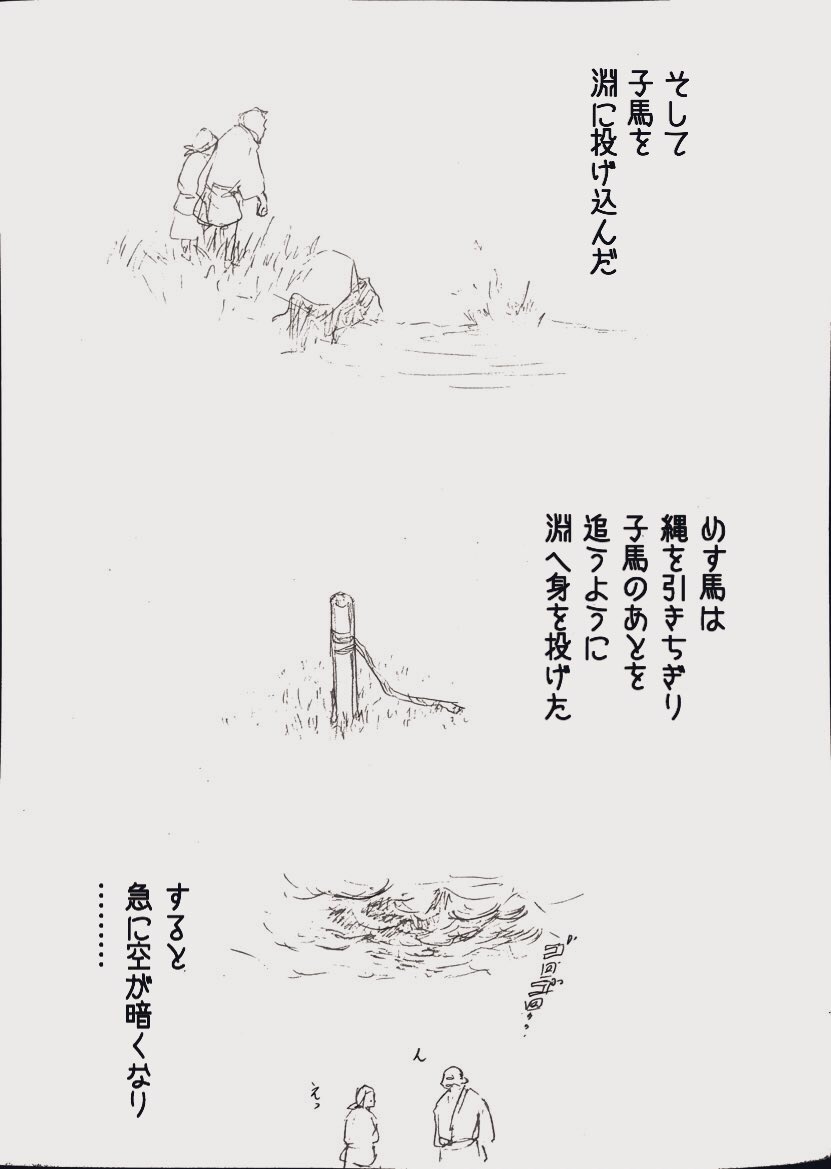 そして
子馬を
淵に投げ込んだ
めす馬は
縄を引きちぎり
子馬のあとを
追うように
淵へ身を投げた
すると
急に空が暗くなり
………
ゴロゴロ…
ん
えっ